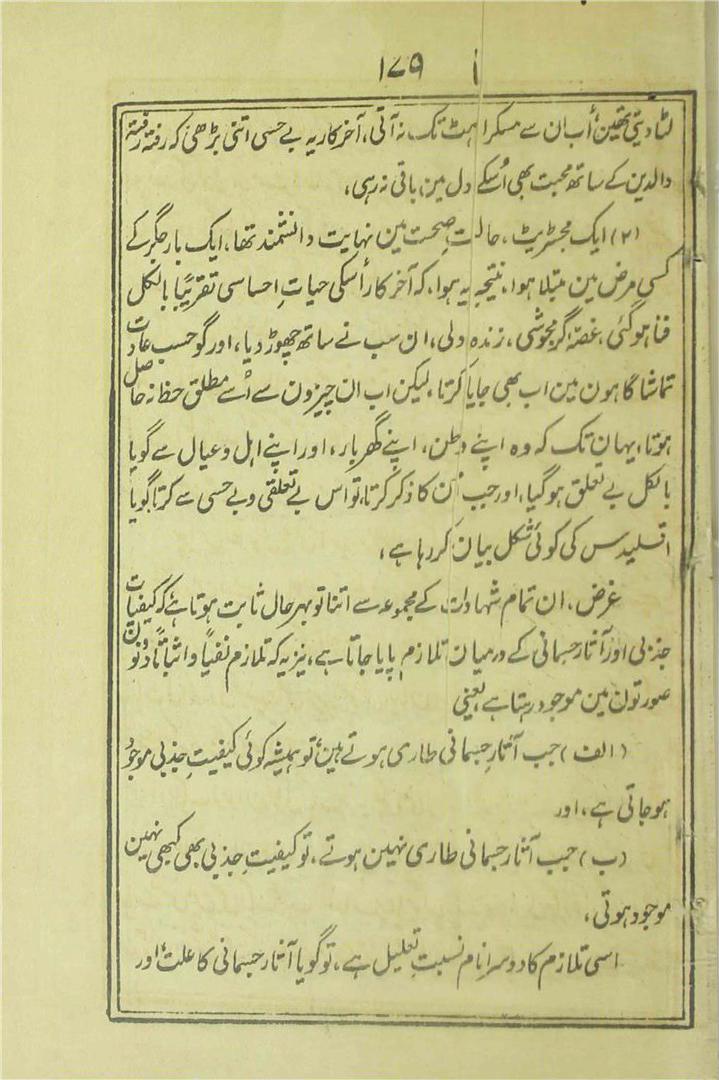 ۱۷۹
لٹا دیتی تھین اُب ان سے مسکراہٹ تک نہ آتی، آخر کار یہ بے حسی اتنی بڑھی کہ رفتہ رفتہ
والدین کے ساتھ محبت بھی اُسکے دل مین باقی نہ رہی،
(۲) ایک مجسٹریٹ، حالتِ صحت مین نہایت دانشمند تھا، ایک بار جگر کے
کسی مرض مین مبتلا ہوا، نتیجہ یہ ہوا، کہ آخر کار اُسکی حیاتِ احساسی تقریبًا بالکل
فنا ہوگئی، غصہ، گرمجوشی، زندہ دلی، ان سب نے ساتھ چھوڑ دیا، اور گو حسب عادت
تماشاگاہون مین اب بھی جایا کرتا، لیکن اب ان چیزون سے اُسے مطلق حظ نہ حاصل
ہوتا، یہان تک کہ وہ اپنے وطن، اپنے گھر بار، اور اپنے اہل و عیال سے گویا
بالکل بے تعلق ہوگیا، اور جب ان کا ذکر کرتا، تو اس بے تعلقی و بے حسی سے کرتا، گویا
اقلیدس کی کوئی شکل بیان کر رہا ہے،
غرض، ان تمام شہادات کے مجموعہ سے اتنا تو بہرحال ثابت ہوتا ہے، کہ کیفیات
جذبی اور آثار جسمانی کے درمیان تلازم پایا جاتا ہے، نیز یہ کہ تلازم نفیًا و اثباتًا دونون
صورتون مین موجود رہتا ہے، یعنی
(الف) جب آثارِ جسمانی طاری ہوتے ہین، تو ہمیشہ کوئی کیفیتِ جذبی موجود
ہوجاتی ہے، اور
(ب) جب آثار جسمانی طاری نہین ہوتے، تو کیفیتِ جذبی بھی کبھی نہین
موجود ہوتی،
اسی تلازم کا دوسرا نام نسبتِ تعلیل ہے، تو گویا آثار جسمانی کا علت، اور